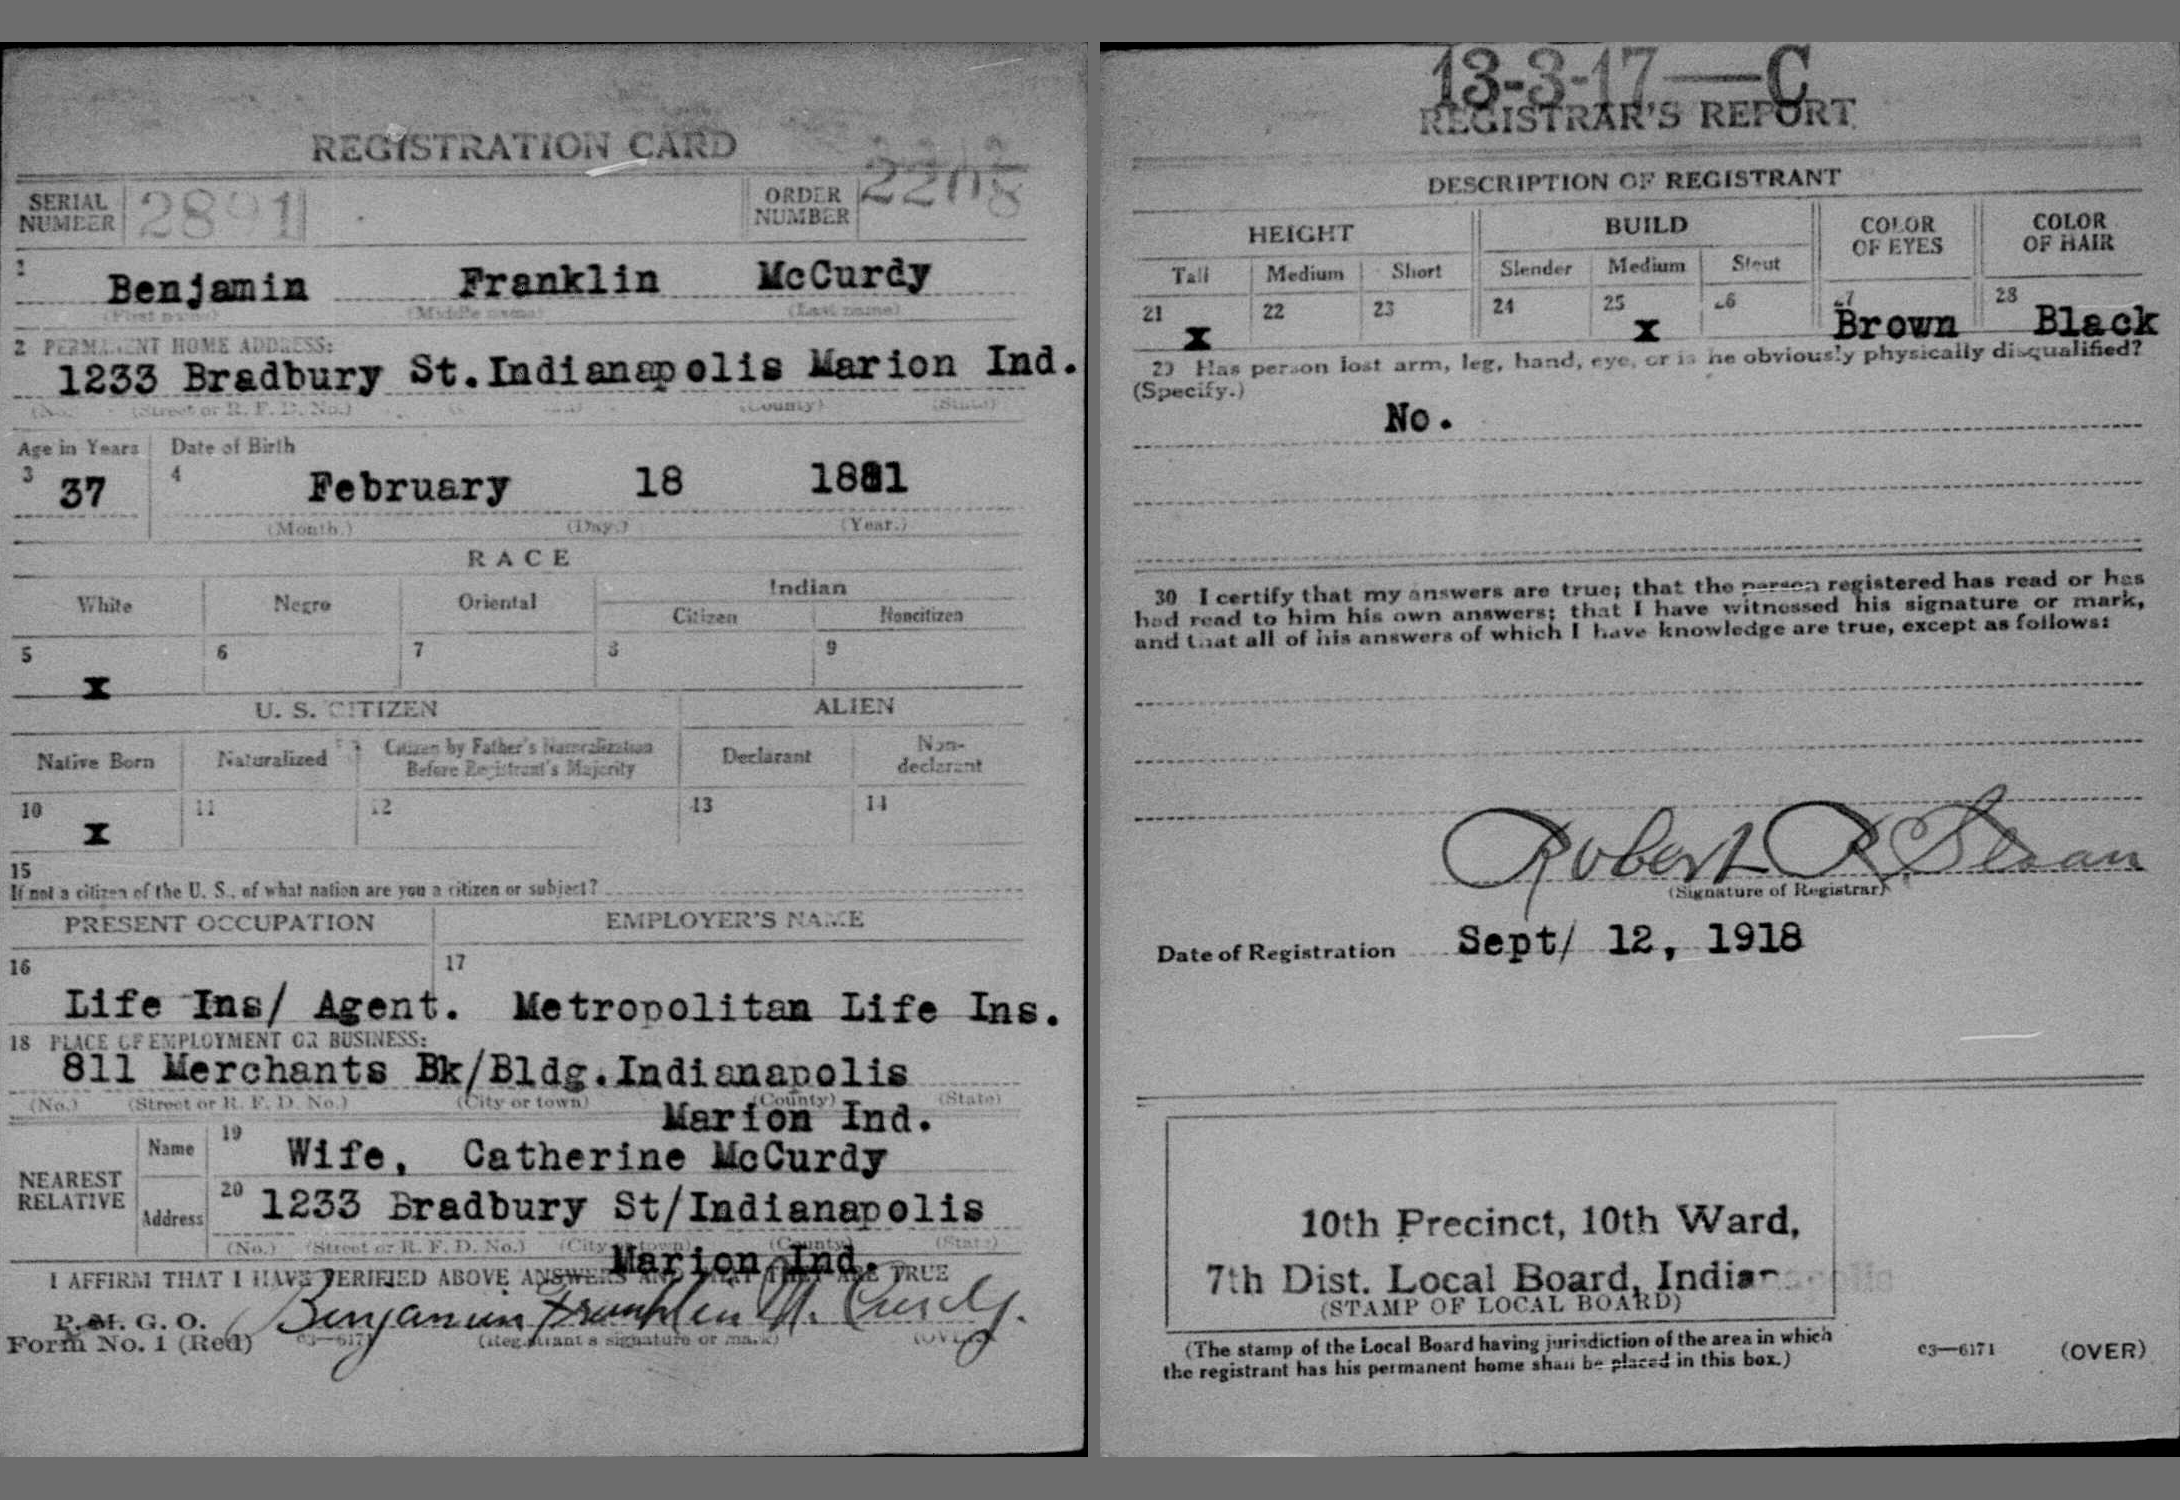 REGISTRATION CARD
SERIAL NUMBER 2891 ORDER NUMBER
1 Benjamin Franklin McCurdy
(First name) (Middle name) (Last name)
2 PERMANENT HOME ADDRESS:
1233 Bradbury St.Indianapolis Marion Ind.
(No.) (Street or R. F. D. No.) (County) (State)
Age in Years Date of Birth
3 37 4 February 18 1881
(Month.) (Day.) (Year.)
RACE
White Negro Oriental Indian
Citizen Noncitizen
5 6 7 8 9
X
U. S. CITIZEN ALIEN
Native Born Naturalized Citizen by Father's Naturalization Before Registrant's Majority Declarant Non-declarant
10 11 12 13 14
X
15
If not a citizen of the U. S., of what nation are you a citizen or subject?
PRESENT OCCUPATION EMPLOYER'S NAME
16 17
Life Ins/ Agent. Metropolitan Life Ins.
18 PLACE OF EMPLOYMENT OR BUSINESS:
811 Merchants Bk/Bldg.Indianapolis
(No.) (Street or R. F. D. No.) (City or town) (County) (State)
Marion Ind.
NEAREST RELATIVE Name 19 Wife, Catherine McCurdy
Address 20 1233 Bradbury St/Indianapolis
(No.) (Street or R. F. D. No.) (City or town) (County) (State)
Marion Ind.
I AFFIRM THAT I HAVE VERIFIED ABOVE ANSWERS AND THAT THEY ARE TRUE
P. M. G. O. Benjamin Franklin McCurdy.
Form No. 1 (Red) c3—6171 (Registrant's signature or mark) (OVER)
13-3-17—C
REGISTRAR'S REPORT
DESCRIPTION OF REGISTRANT
HEIGHT BUILD COLOR OF EYES COLOR OF HAIR
Tall Medium Short Slender Medium Stout
21 22 23 24 25 26 27 28
X X Brown Black
29 Has person lost arm, leg, hand, eye, or is he obviously physically disqualified?
(Specify.)
No.
30 I certify that my answers are true; that the person registered has read or has
had read to him his own answers; that I have witnessed his signature or mark,
and that all of his answers of which I have knowledge are true, except as follows:
Robert R Sloan
(Signature of Registrar)
Date of Registration Sept/ 12, 1918
10th Precinct, 10th Ward,
7th Dist. Local Board, Indianapolis
(STAMP OF LOCAL BOARD)
(The stamp of the Local Board having jurisdiction of the area in which
the registrant has his permanent home shall be placed in this box.)
c3—6171 (OVER)